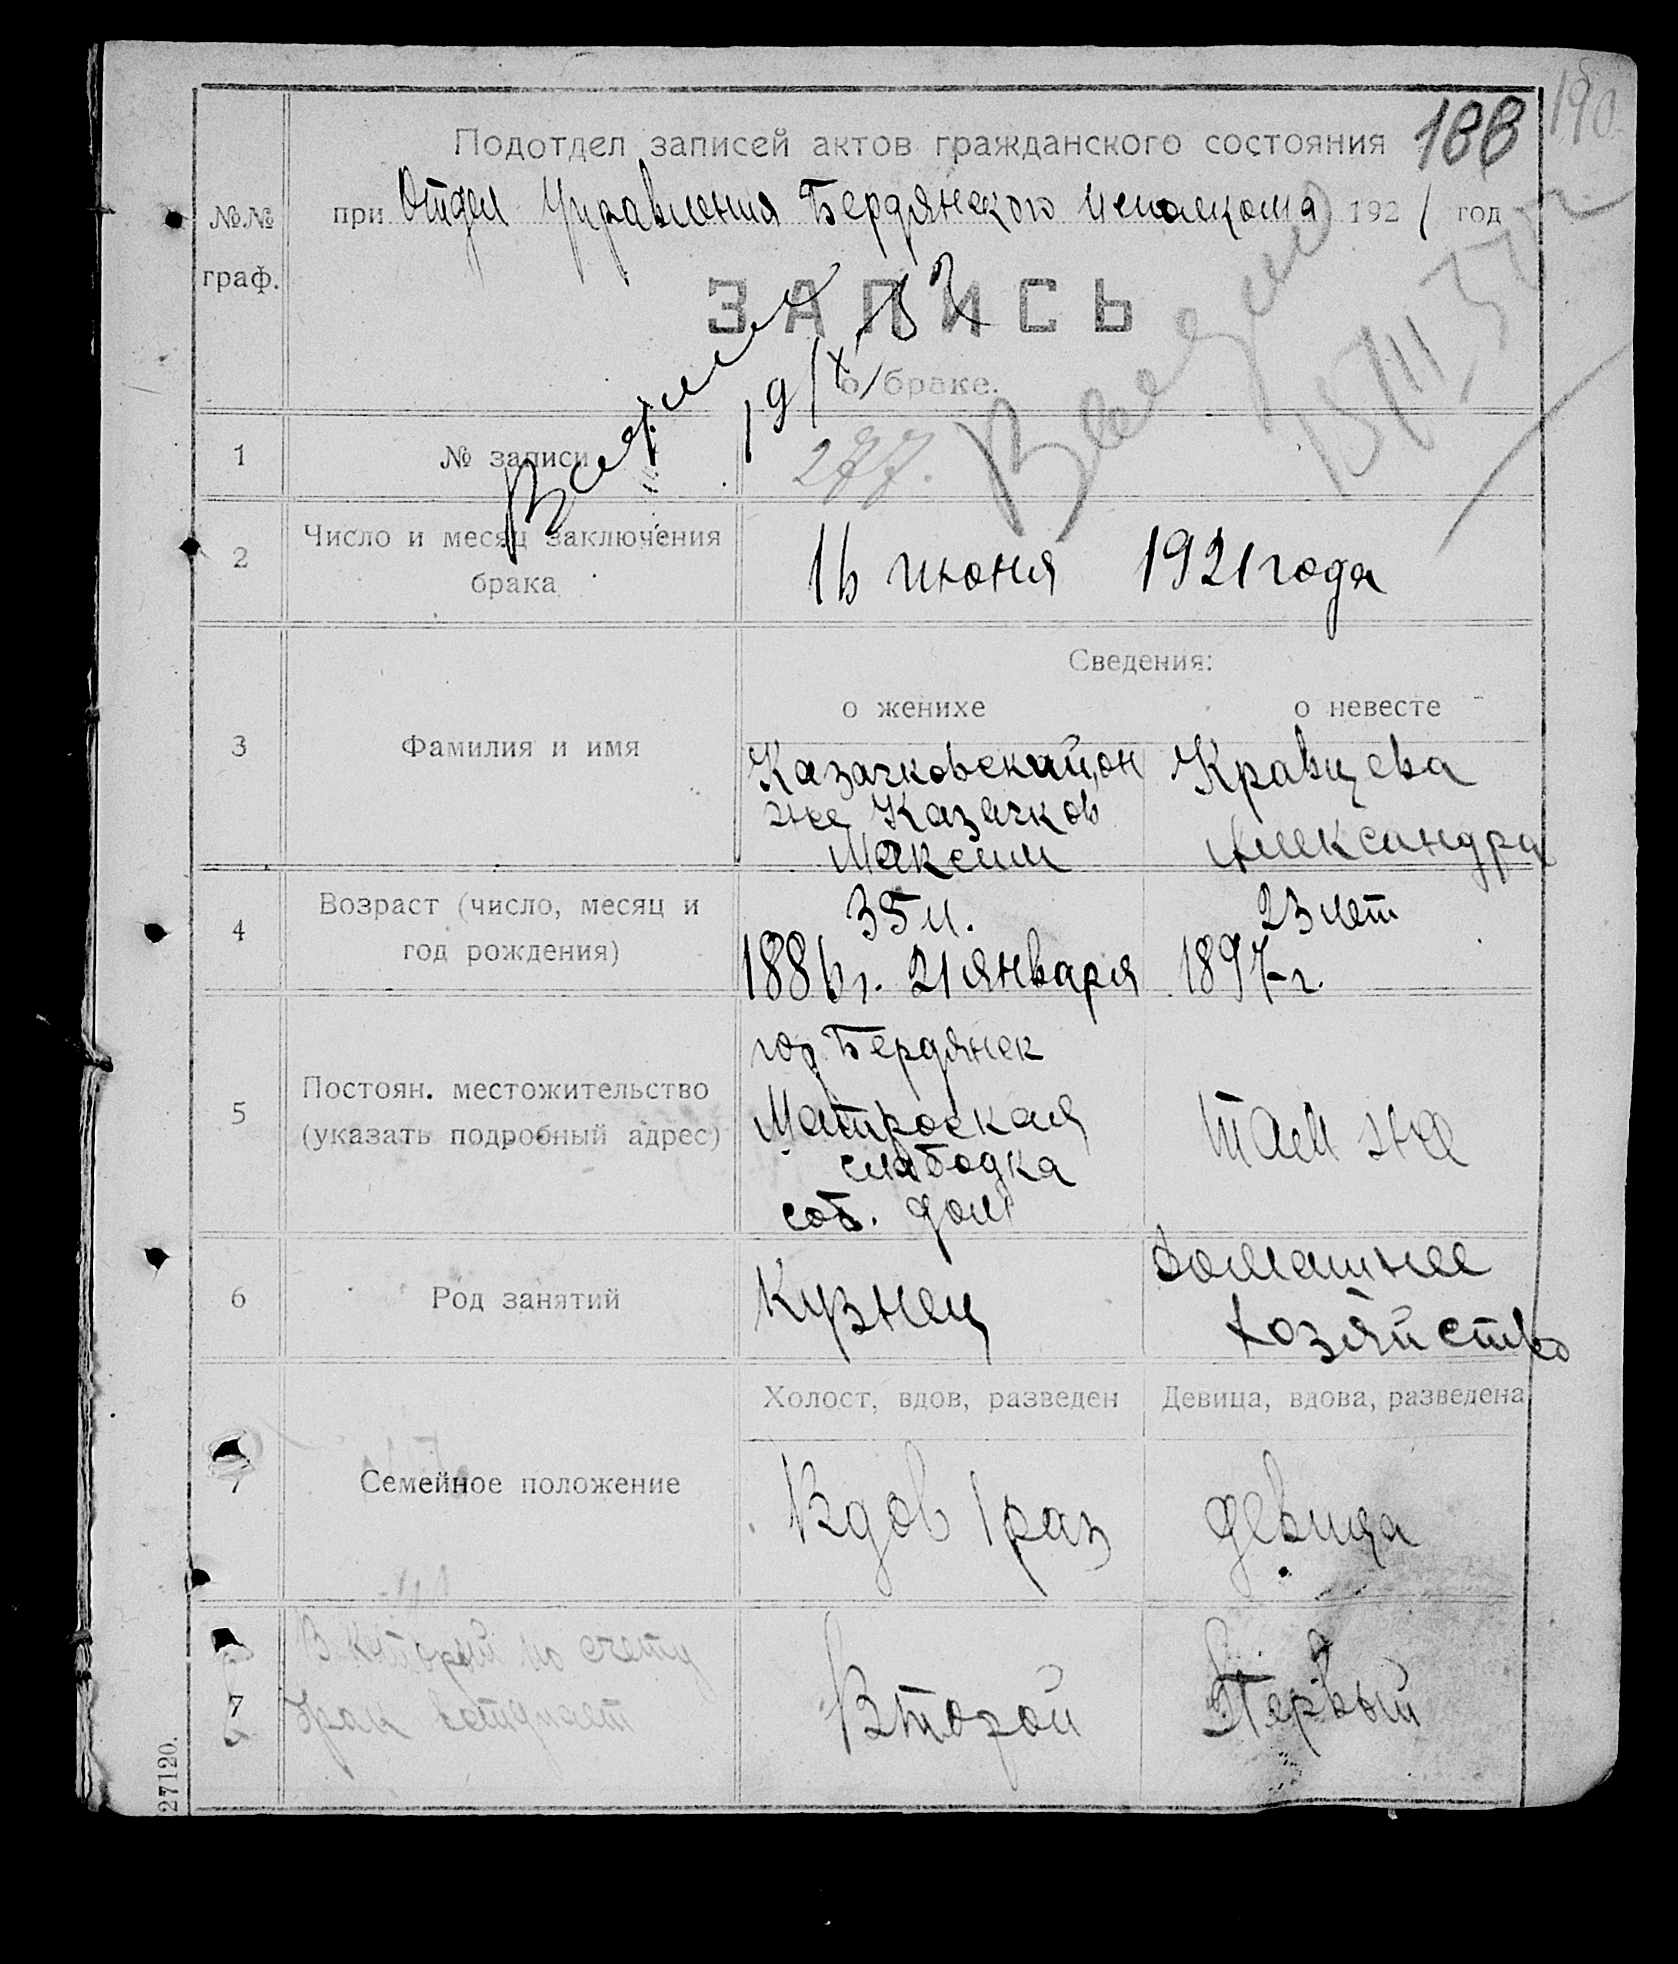 190
188
Подотдел записей актов гражданского состояния
№№ граф.
при Отдел Управления Бердянского Исполкома 1921 год
ЗАПИСЬ
о браке.
19/X
1 № записи 277.
2 Число и месяц заключения брака
16 июня 1921 года
Сведения:
о женихе о невесте
3 Фамилия и имя
Казачковский, он Кравцева
же Казачков
Максим Александра
4 Возраст (число, месяц и год рождения)
35 л. 23 лет
1886 г. 21 января 1897 г.
5 Постоян. местожительство (указать подробный адрес)
гор. Бердянск
Матроская там же
слабодка
соб. дом
6 Род занятий
Кузнец домашнее
хозяйство
Холост, вдов, разведен Девица, вдова, разведена
7 Семейное положение
Вдов 1 раз девица
7 В который по счету
брак вступает
Второй Первый
27120.